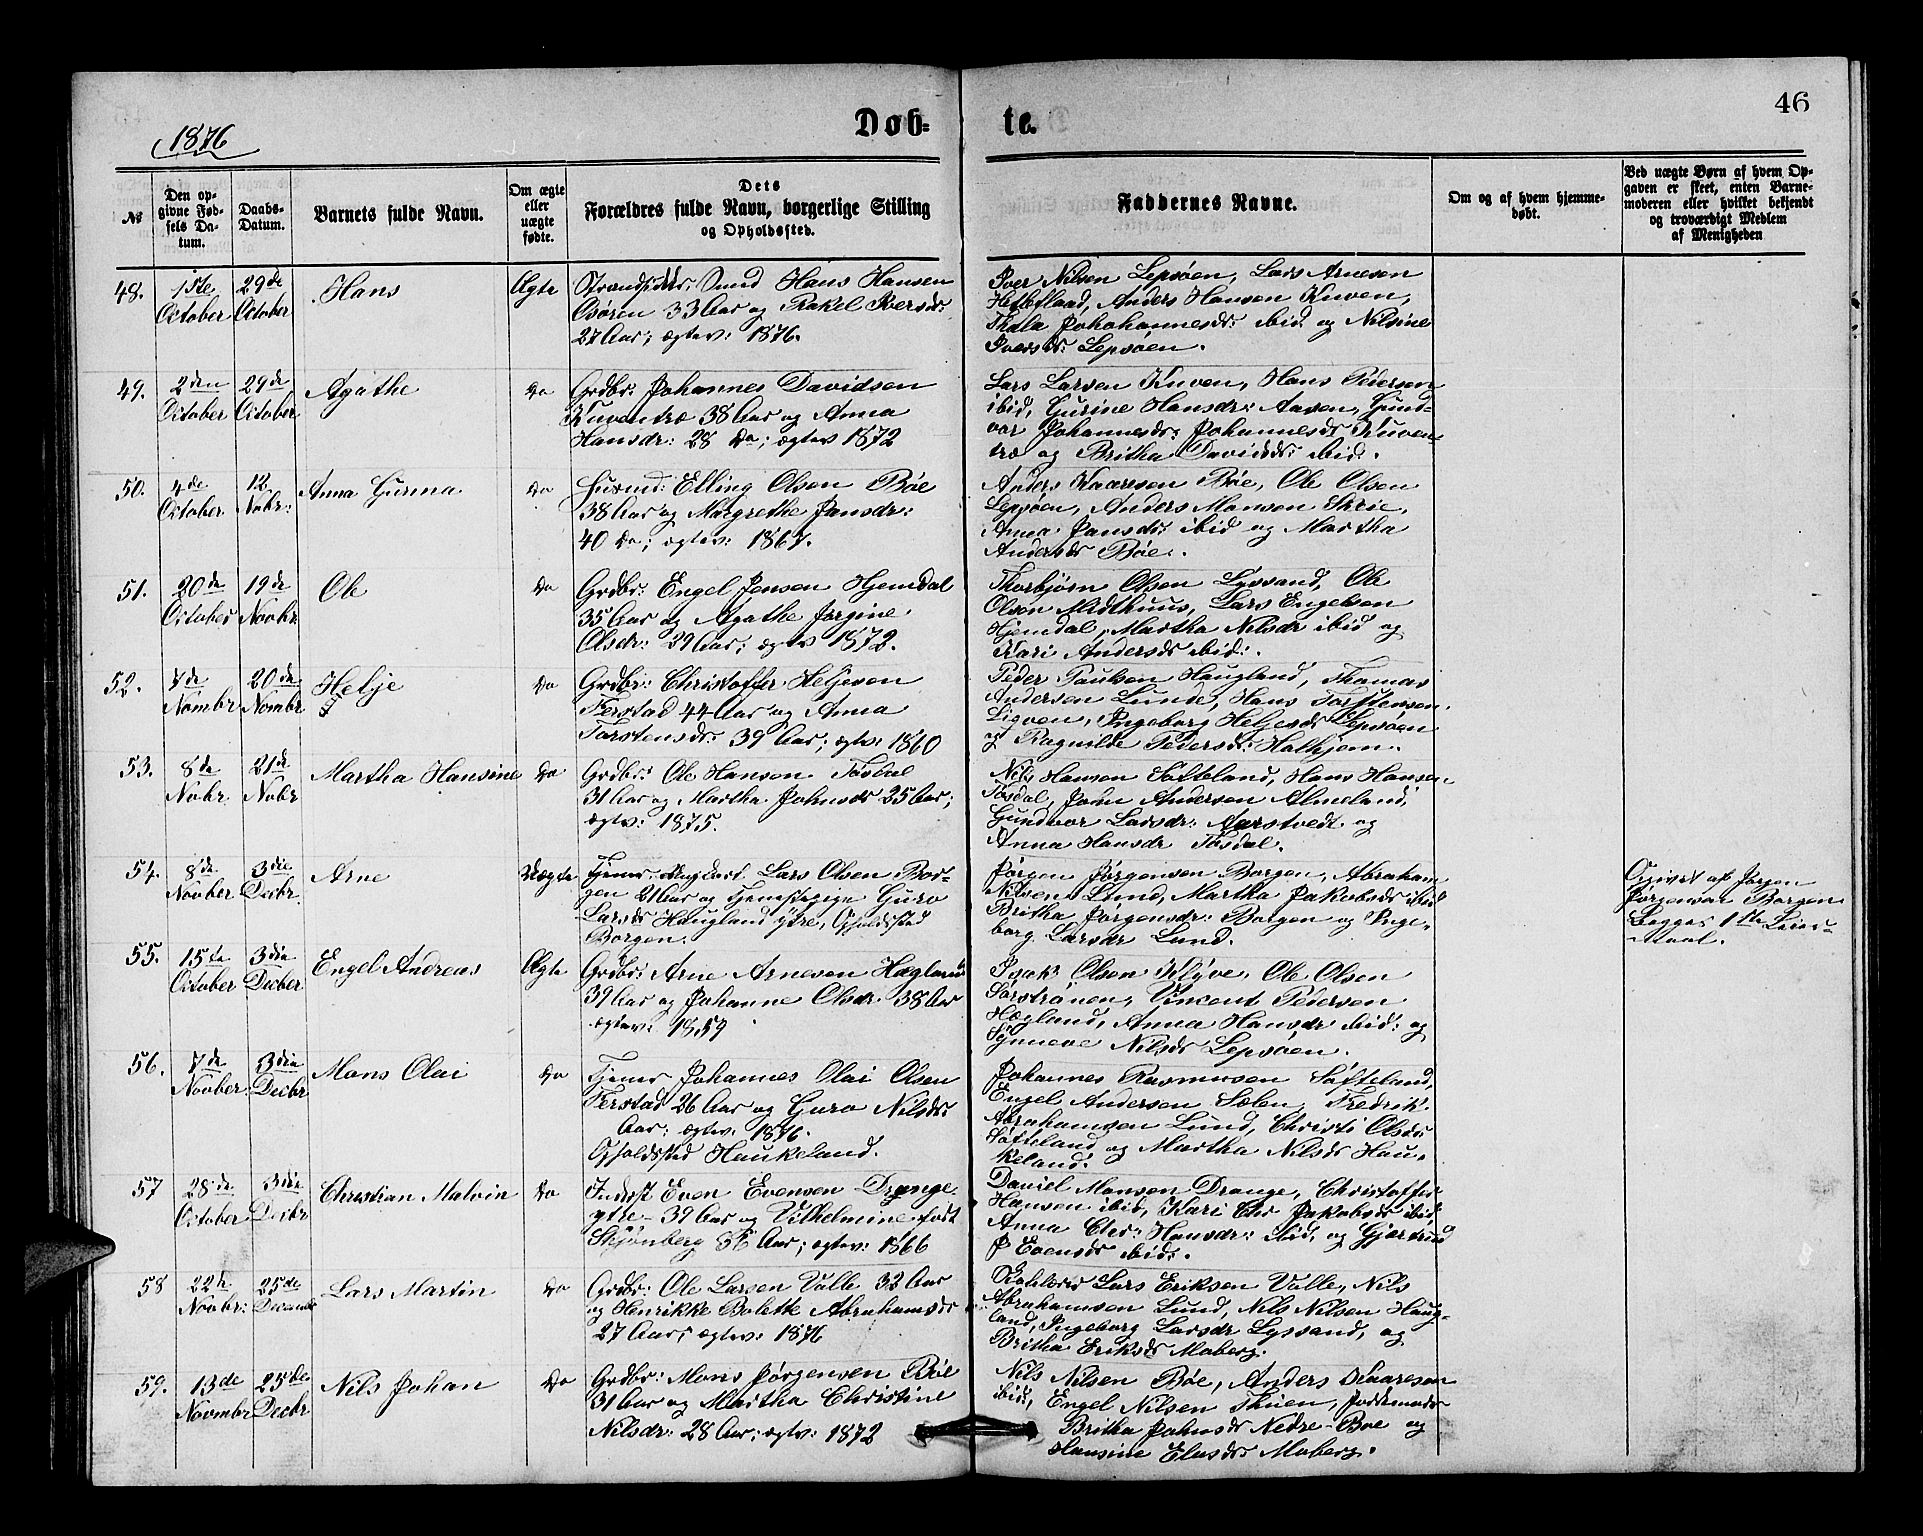 46
1876
Døb= te.
№
Den op-
givne Fød-
sels Da-
tum.
Daabs-
Datum.
Barnets fulde Navn.
Om ægte
eller
uægte
fødte.
Dets
Forældres fulde Navn, borgerlige Stilling
og Opholdssted.
Faddernes Navne.
Om og af hvem hjemme-
døbt.
Ved uægte Børn af hvem Op-
gaven er skeet, enten Barne-
moderen eller hvilket bekjendt
og troværdigt Medlem
af Menigheden
48. 1ste October 29de October Hans Ægte
Hans Hansen
Osøren 33 Aar og Rakel Iversdr:
27 Aar; ægtev: 1876.
Iver Nilsen Lepsøen, Lars Arnesen
Hetlefload, Anders Hansen Kuven,
Thala Johahannesdr: ibid og Nilsine
Iversdr: Lepsøen.
49. 2den October 29de October Agathe Do
Grdbr: Johannes Davidsen
Kuventræ 38 Aar og Anna
Hansdr: 28 Do; ægtev 1872
Lars Larsen Kuven, Hans Pedersen
ibid, Gurine Hansdr: Aasen, Gund-
vor Johannesdr: Johannesdr Kuven-
træ og Britha Davidsdr ibid.
50. 4de October 12 Nobr: Anna Gurina Do
Husmd: Elling Olsen Bøe
38 Aar og Margrethe Jansdr:
40 Do; ægtev: 1867.
Anders Kaaresen Bøe, Ole Olsen
Lepsøen, Anders Monsen Skeie,
Anna Jansdr: ibid og Martha
Andersdr Bøe.
51. 20de October 19de Novbr. Ole Do
Grdbr: Engel Jensen Hjemdal
35 Aar og Agathe Jørgine
Olsdr: 29 Aar; ægtev 1872.
Thorbjørn Olsen Lyssand, Ole
Olsen Midthuus, Lars Engelsen
Hjemdal, Martha Nilsdr ibid og
Kari Andersdr ibid.
52. 7de Nombr 20de Nombr Helje Do
Grdbr: Christoffer Heljesen
Ferstad 44 Aar og Anna
Torstensdr: 39 Aar; ægtev: 1860
Peder Paulsen Haugland, Thomas
Andersen Lunde, Hans Torstensen
Ligven, Ingeborg Heljesdr Lepsøen
og Ragnilde Pedersdr: Halhjem.
53. 8de Nobr. 21de Nobr Martha Hansine Do
Grdbr: Ole Hansen Tøsdal
31 Aar og Martha Johnsdr 25 Aar;
ægtev: 1875.
Nils Hansen Søfteland, Hans Hansen
Tøsdal, John Andersen Almeland,
Gundvor Larsdr: Aarstvedt og
Anna Hansdr Tøsdal.
54. 8de Novber 3die Decbr. Arne Uægte
Tjener, Ungkarl Lars Olsen Bor-
gen 21 Aar og Tjenestepige Guro
Larsdr Haugland ytre, Opholdssted
Borgen.
Jørgen Jørgensen Borgen, Abraham
Nilsen Lund, Martha Jakobsdr ibid
Britha Jørgensdr: Borgen og Inge-
borg Larsdr Lund.
Opgivet af Jørgen
Jørgensen Borgen
Begges 1ste Leier-
maal.
55. 15te October 3die Decber Engel Andreas Ægte
Grdbr: Arne Arnesen Hægland
39 Aar og Johanne Olsdr. 38 Aar
ægtev: 1859
Isak Olsen Klyve, Ole Olsen
Sørstrønen, Vincent Pedersen
Hægland, Anna Hansdr ibid: og
Synneve Nilsdr Lepsøen.
56. 7de Novber: 3die Decbr Mons Olai Do
Tjener Johannes Olai Olsen
Ferstad 26 Aar og Guro Nilsdr:
Aar; ægtev. 1876.
Opholdssted Haukeland.
Johannes Rasmusen Søfteland,
Engel Andersen Sælen, Fredrik
Abrahamsen Lund, Christi Olsdr
Søfteland og Martha Nilsdr Hau-
keland.
57 28de October 3die Decbr Christian Malvin Do
Inderst Even Evensen Drange
ytre 39 Aar og Vilhelmine født
Skjønberg 36 Aar; ægtev: 1866
Daniel Monsen Drange, Christoffer
Hansen ibid, Kari Chr Jakobsdr ibid,
Anna Chr: Hansdr: ibid, og Gjertrud
J Evensdr ibid.
58 22de Novbr: 25de Lars Martin Do
Grdbr: Ole Larsen Valle 32 Aar
og Henrikke Bolette Abrahamsdr
27 Aar; ægtev: 1876
Lars Eriksen Valle, Nils
Abrahamsen Lund, Nils Nilsen Haug-
land, Ingeborg Larsdr Lyssand, og
Britha Eriksdr Moberg.
59. 13de Novmbr 25de Decbr Nils Johan Do
Grdbr: Mons Jørgensen Bøe
31 Aar og Martha Christine
Nilsdr: 28 Aar; ægtev: 1872
Nils Nilsen Bøe, Anders Kaaresen
ibid, Engel Nilsen Thuen,
Britha Johnsdr Nedre-Bøe og
Hansine Elasdr Moberg.